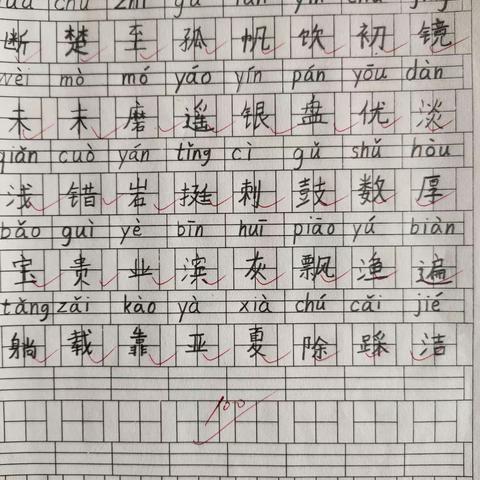 断 楚 至 孤 帆 饮 初 镜
wèi mò mó yáo yín pán yōu dàn
未 末 磨 遥 银 盘 优 淡
qiǎn cuò yán tǐng cì gǔ shǔ hòu
浅 错 岩 挺 刺 鼓 数 厚
bǎo guì yè bīn huī piāo yú biàn
宝 贵 业 滨 灰 飘 渔 遍
tǎng zǎi kào yà xià chú cǎi jié
躺 载 靠 亚 夏 除 踩 洁
100